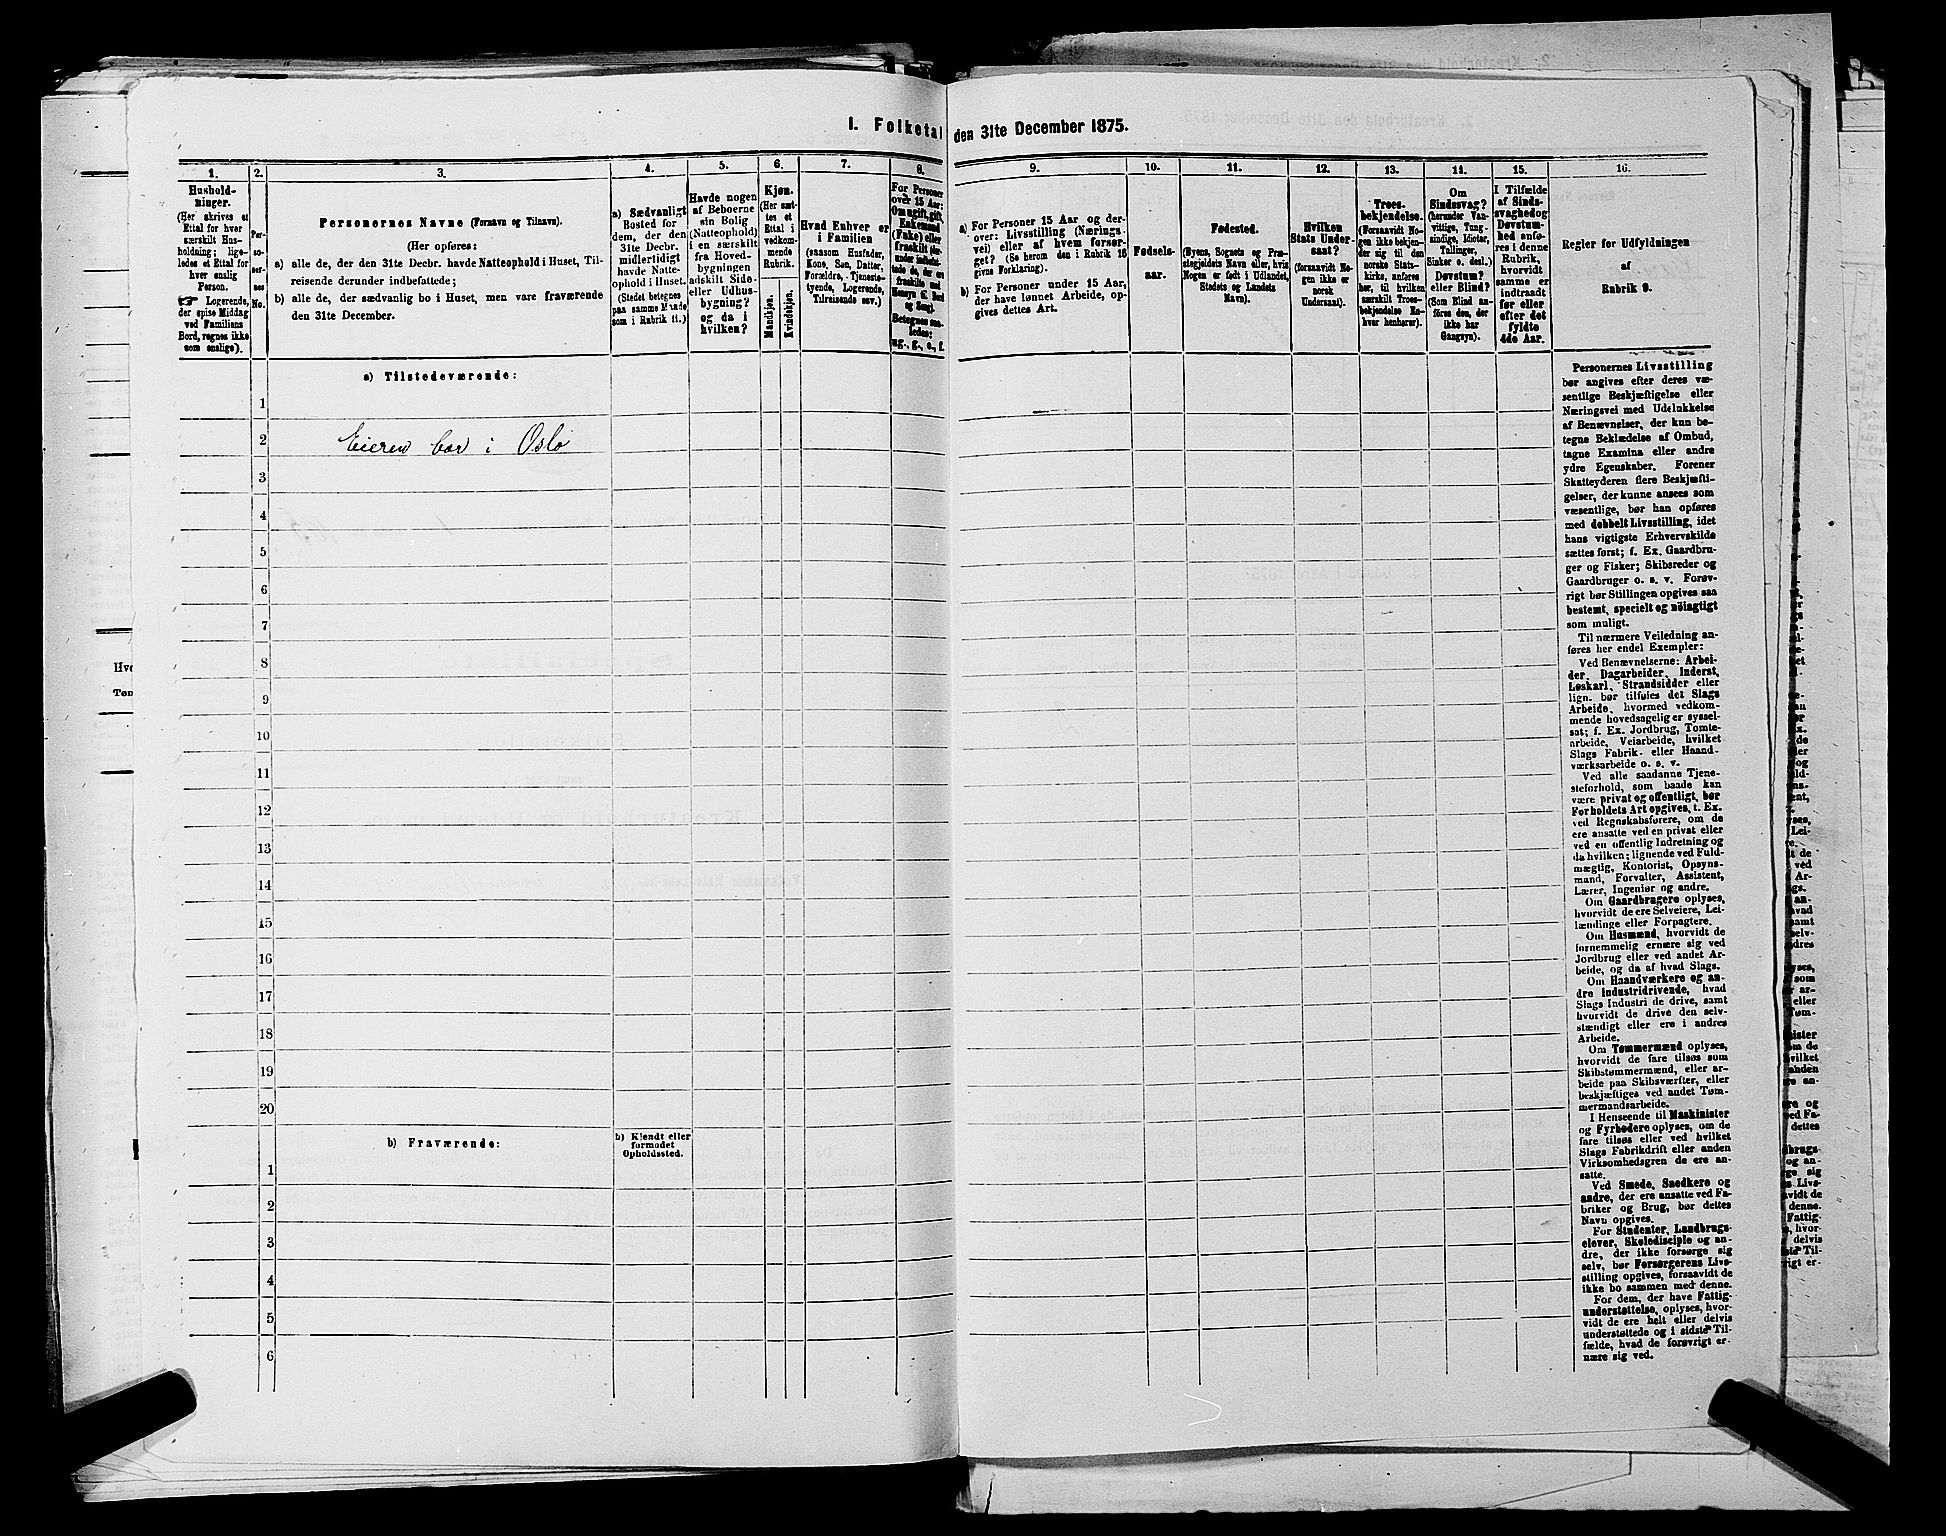 I. Folketal den 31te December 1875.
1.
Hushold-
ninger.
(Her skrives et
Ettal for hver
særskilt Hus-
holdning; lige-
ledes et Ettal for
hver enslig
Person.
Logerende,
der spise Middag
ved Familiens
Bord, regnes ikke
som enslige).
2.
Per-
so-
ner-
nes
No.
3.
Personernes Navne (Fornavn og Tilnavn).
(Her opføres:
a) alle de, der den 31te Decbr. havde Natteophold i Huset, Til-
reisende derunder indbefattede;
b) alle de, der sædvanlig bo i Huset, men vare fraværende
den 31te December.
4.
a) Sædvanligt
Bosted for
dem, der den
31te Decbr.
midlertidigt
havde Natte-
ophold i Huset.
(Stedet betegnes
paa samme Maade
som i Rubrik 11.)
5.
Havde nogen
af Beboerne
sin Bolig
(Natteophold)
i en særskilt
fra Hoved-
bygningen
adskilt Side-
eller Udhus-
bygning?
og da i
hvilken?
6.
Kjøn.
(Her sæt-
tes et
Ettal i
vedkom-
mende
Rubrik.
Mandkjøn.
Kvindekjøn.
7.
Hvad Enhver er
i Familien
(saasom Husfader,
Kone, Søn, Datter,
Forældre, Tjeneste-
tyende, Logerende,
Tilreisende osv.)
8.
For Personer
over 15 Aar:
Om ugift, gift,
Enkemand
(Enke) eller
fraskilt
Betegnes saa-
ledes:
ug., g., e., f.
9.
a) For Personer 15 Aar og der-
over: Livsstilling (Nærings-
vei) eller af hvem forsør-
get? (Se herom den i Rubrik 16
givne Forklaring).
b) For Personer under 15 Aar,
der have lønnet Arbeide, op-
gives dettes Art.
10.
Fødsels-
aar.
11.
Fødested.
(Byens, Sognets og Præ-
stegjeldets Navn eller, hvis
Nogen er født i Udlandet,
Stedets og Landets
Navn).
12.
Hvilken
Stats Under-
saat?
(forsaavidt No-
gen ikke er
norsk
Undersaat).
13.
Troes-
bekjendelse.
(Forsaavidt No-
gen ikke bekjen-
der sig til den
norske Stats-
kirke, anføres
her, til hvilken
særskilt Troes-
bekjendelse En-
hver henhører).
14.
Om
Sindssvag?
(herunder Van-
vittige, Tung-
sindige, Idioter,
Tullinger,
Sinker o. desl.).
Døvstum?
eller Blind?
(Som Blind an-
føres den, der
ikke har
Gangsyn).
15.
I Tilfælde
af Sinds-
svaghed og
Døvstum-
hed anfø-
res i denne
Rubrik,
hvorvidt
samme er
indtraadt
før eller
efter det
fyldte
4de Aar.
16.
Regler for Udfyldningen
af
Rubrik 9.
a) Tilstedeværende:
1
2 Eieren bor i Oslo
3
4
5
6
7
8
9
10
11
12
13
14
15
16
17
18
19
20
b) Fraværende:
b) Kjendt eller
formodet
Opholdssted.
1
2
3
4
5
6
Personernes Livsstilling
bør angives efter deres væ-
sentlige Beskjæftigelse eller
Næringsvei med Udelukkelse
af Benævnelser, der kun be-
tegne Beklædelse af Ombud,
tagne Examina eller andre
ydre Egenskaber. Forener
Skatteyderen flere Beskjæfti-
gelser, der kunne ansees som
væsentlige, bør han opføres
med dobbelt Livsstilling, idet
hans vigtigste Erhvervskilde
sættes først; f. Ex. Gaardbru-
ger og Fisker; Skibsreder og
Gaardbruger o. s. v. Forøv-
rigt bør Stillingen opgives saa
bestemt, specielt og nöiagtigt
som muligt.
Til nærmere Veiledning an-
føres her endel Exempler:
Ved Benævnelserne: Arbei-
der, Dagarbeider, Inderst,
Løskarl, Strandsidder eller
lign. bør tilføies det Slags
Arbeide, hvormed vedkom-
mende hovedsagelig er syssel-
sat; f. Ex. Jordbrug, Tomte-
arbeide, Veiarbeide, hvilket
Slags Fabrik- eller Haand-
værksarbeide o. s. v.
Ved alle saadanne Tjene-
steforhold, som baade kan
være privat og offentligt, bør
Forholdets Art opgives, t. Ex.
ved Regnskabsførere, om de
ere ansatte ved en privat eller
ved en offentlig Indretning og
da hvilken; lignende ved Fuld-
mægtig, Kontorist, Opsyns-
mand, Forvalter, Assistent,
Lærer, Ingeniør og andre.
Om Gaardbrugere oplyses,
hvorvidt de ere Selveiere, Lei-
lændinge eller Forpagtere.
Om Husmænd, hvorvidt de
fornemmelig ernære sig ved
Jordbrug eller ved andet Ar-
beide, og da af hvad Slags.
Om Haandværkere og an-
dre industridrivende, hvad
Slags Industri de drive, samt
hvorvidt de drive den selv-
stændigt eller ere i andres
Arbeide.
Om Tømmermænd oplyses,
hvorvidt de fare tilsøs som
Skibstømmermænd, eller ar-
beide paa Skibsværfter, eller
beskjæftiges ved andet Tøm-
mermandsarbeide.
I Henseende til Maskinister
og Fyrbødere oplyses, om de
fare tilsøs eller ved hvilket
Slags Fabrikdrift eller anden
Virksomhedsgren de ere an-
satte.
Ved Smede, Snedkere og
andre, der ere ansatte ved Fa-
briker og Brug, bør dettes
Navn opgives.
For Studenter, Landbrugs-
elever, Skoledisciple og an-
dre, der ikke forsørge sig
selv, bør Forsørgerens Livs-
stilling opgives, forsaavidt de
ikke bo sammen med denne.
For dem, der have Fattig-
understøttelse, oplyses, hvor-
vidt de ere helt eller delvis
understøttede og i sidste Til-
fælde, hvad de forøvrigt er-
nære sig ved.